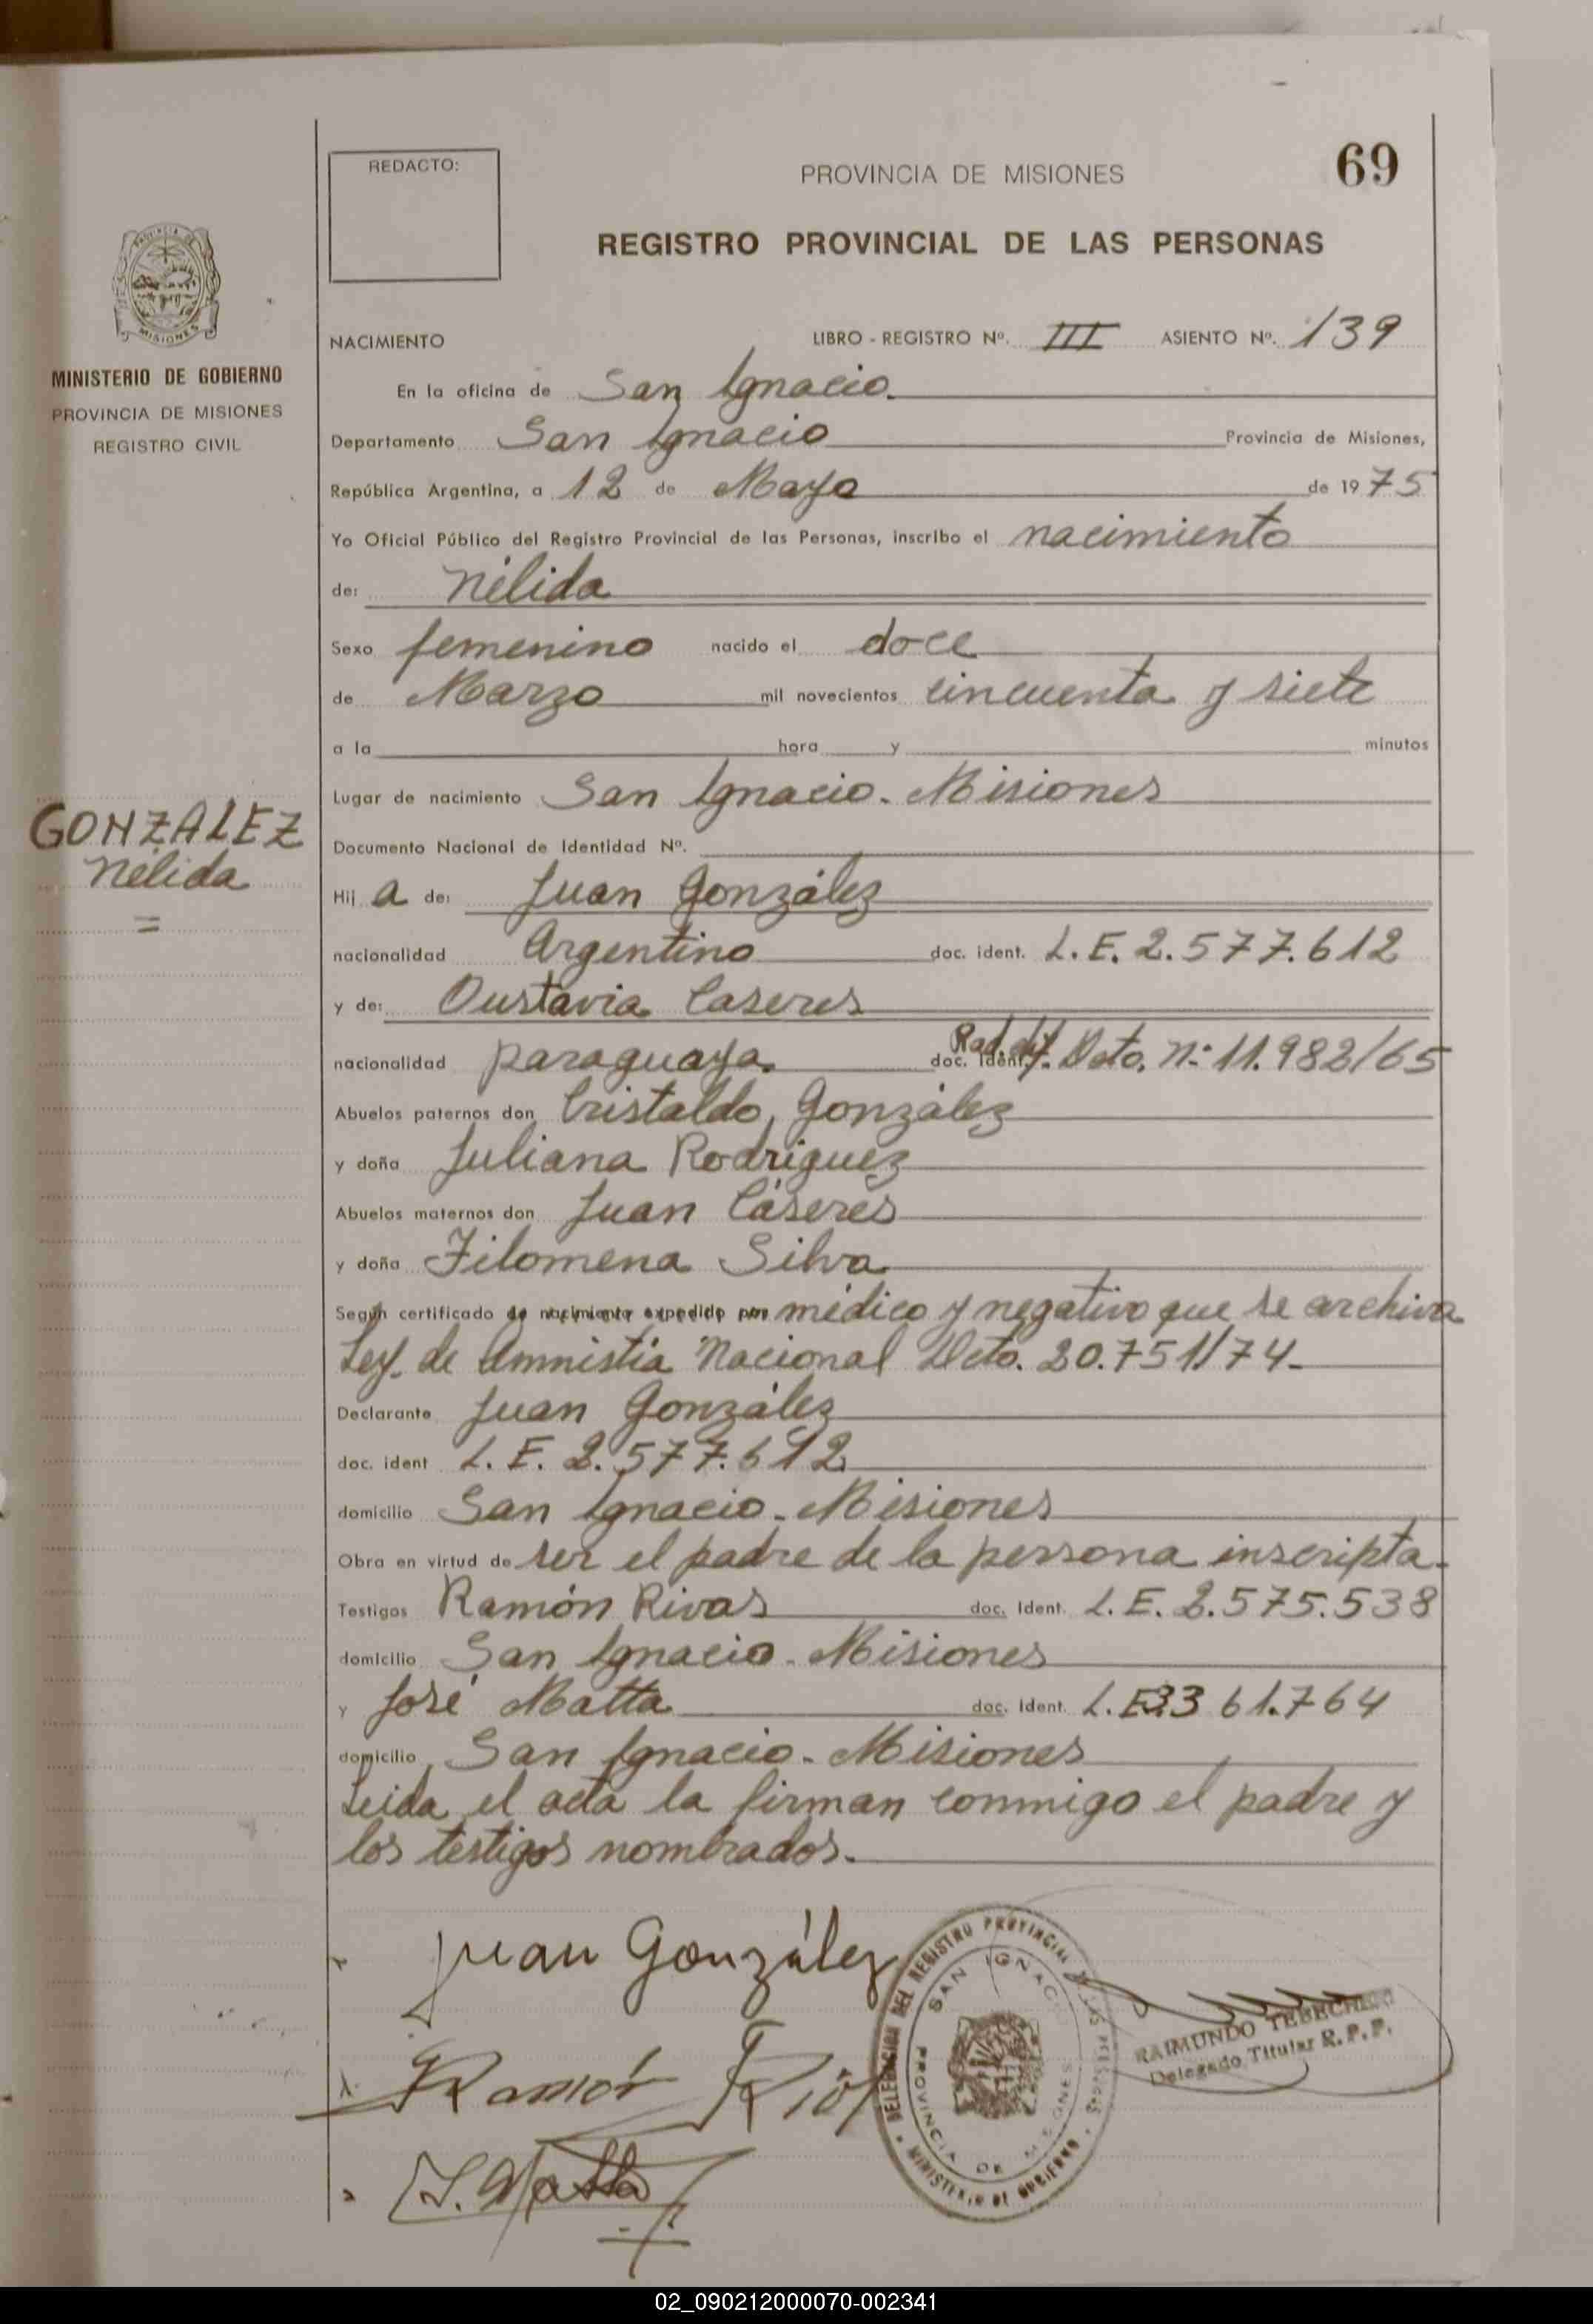 REDACTO:
PROVINCIA DE MISIONES
69
REGISTRO PROVINCIAL DE LAS PERSONAS
MISIONES
MINISTERIO DE GOBIERNO
PROVINCIA DE MISIONES
REGISTRO CIVIL
NACIMIENTO LIBRO - REGISTRO Nº. III ASIENTO Nº. 139
En la oficina de San Ignacio.
Departamento San Ignacio Provincia de Misiones,
República Argentina, a 12 de Mayo de 1975
Yo Oficial Público del Registro Provincial de las Personas, inscribo el nacimiento
de: Nélida
Sexo femenino nacido el doce
de Marzo mil novecientos cincuenta y siete
a la hora y minutos
Lugar de nacimiento San Ignacio. Misiones
GONZALEZ
Nélida
Documento Nacional de Identidad Nº.
Hij a de: Juan González
nacionalidad Argentino doc. ident. L.E. 2.577.612
y de: Oustavia Caseres
nacionalidad paraguaya. doc. ident. Rad. def. Dcto. nº 11.982/65
Abuelos paternos don Cristaldo González
y doña Juliana Rodríguez
Abuelos maternos don Juan Cáseres
y doña Filomena Silva
Según certificado de nacimiento expedido por médico y negativo que se archiva
Ley de Amnistía Nacional Dcto. 20.751/74.
Declarante Juan González
doc. ident L.E. 2.577.612
domicilio San Ignacio. Misiones
Obra en virtud de ser el padre de la persona inscripta.
Testigos Ramón Rivas doc. Ident. L.E. 2.575.538
domicilio San Ignacio. Misiones
y José Matta doc. Ident. L.E. 61.764
domicilio San Ignacio. Misiones
Leida el acta la firman conmigo el padre y
los testigos nombrados.
Juan González
Ramón
J. Matta
DELEGACION DEL REGISTRO PROVINCIAL DE LAS PERSONAS
SAN IGNACIO
PROVINCIA DE MISIONES
MINISTERIO DE GOBIERNO
RAIMUNDO
Delegado Titular R.P.P.
02_090212000070-002341